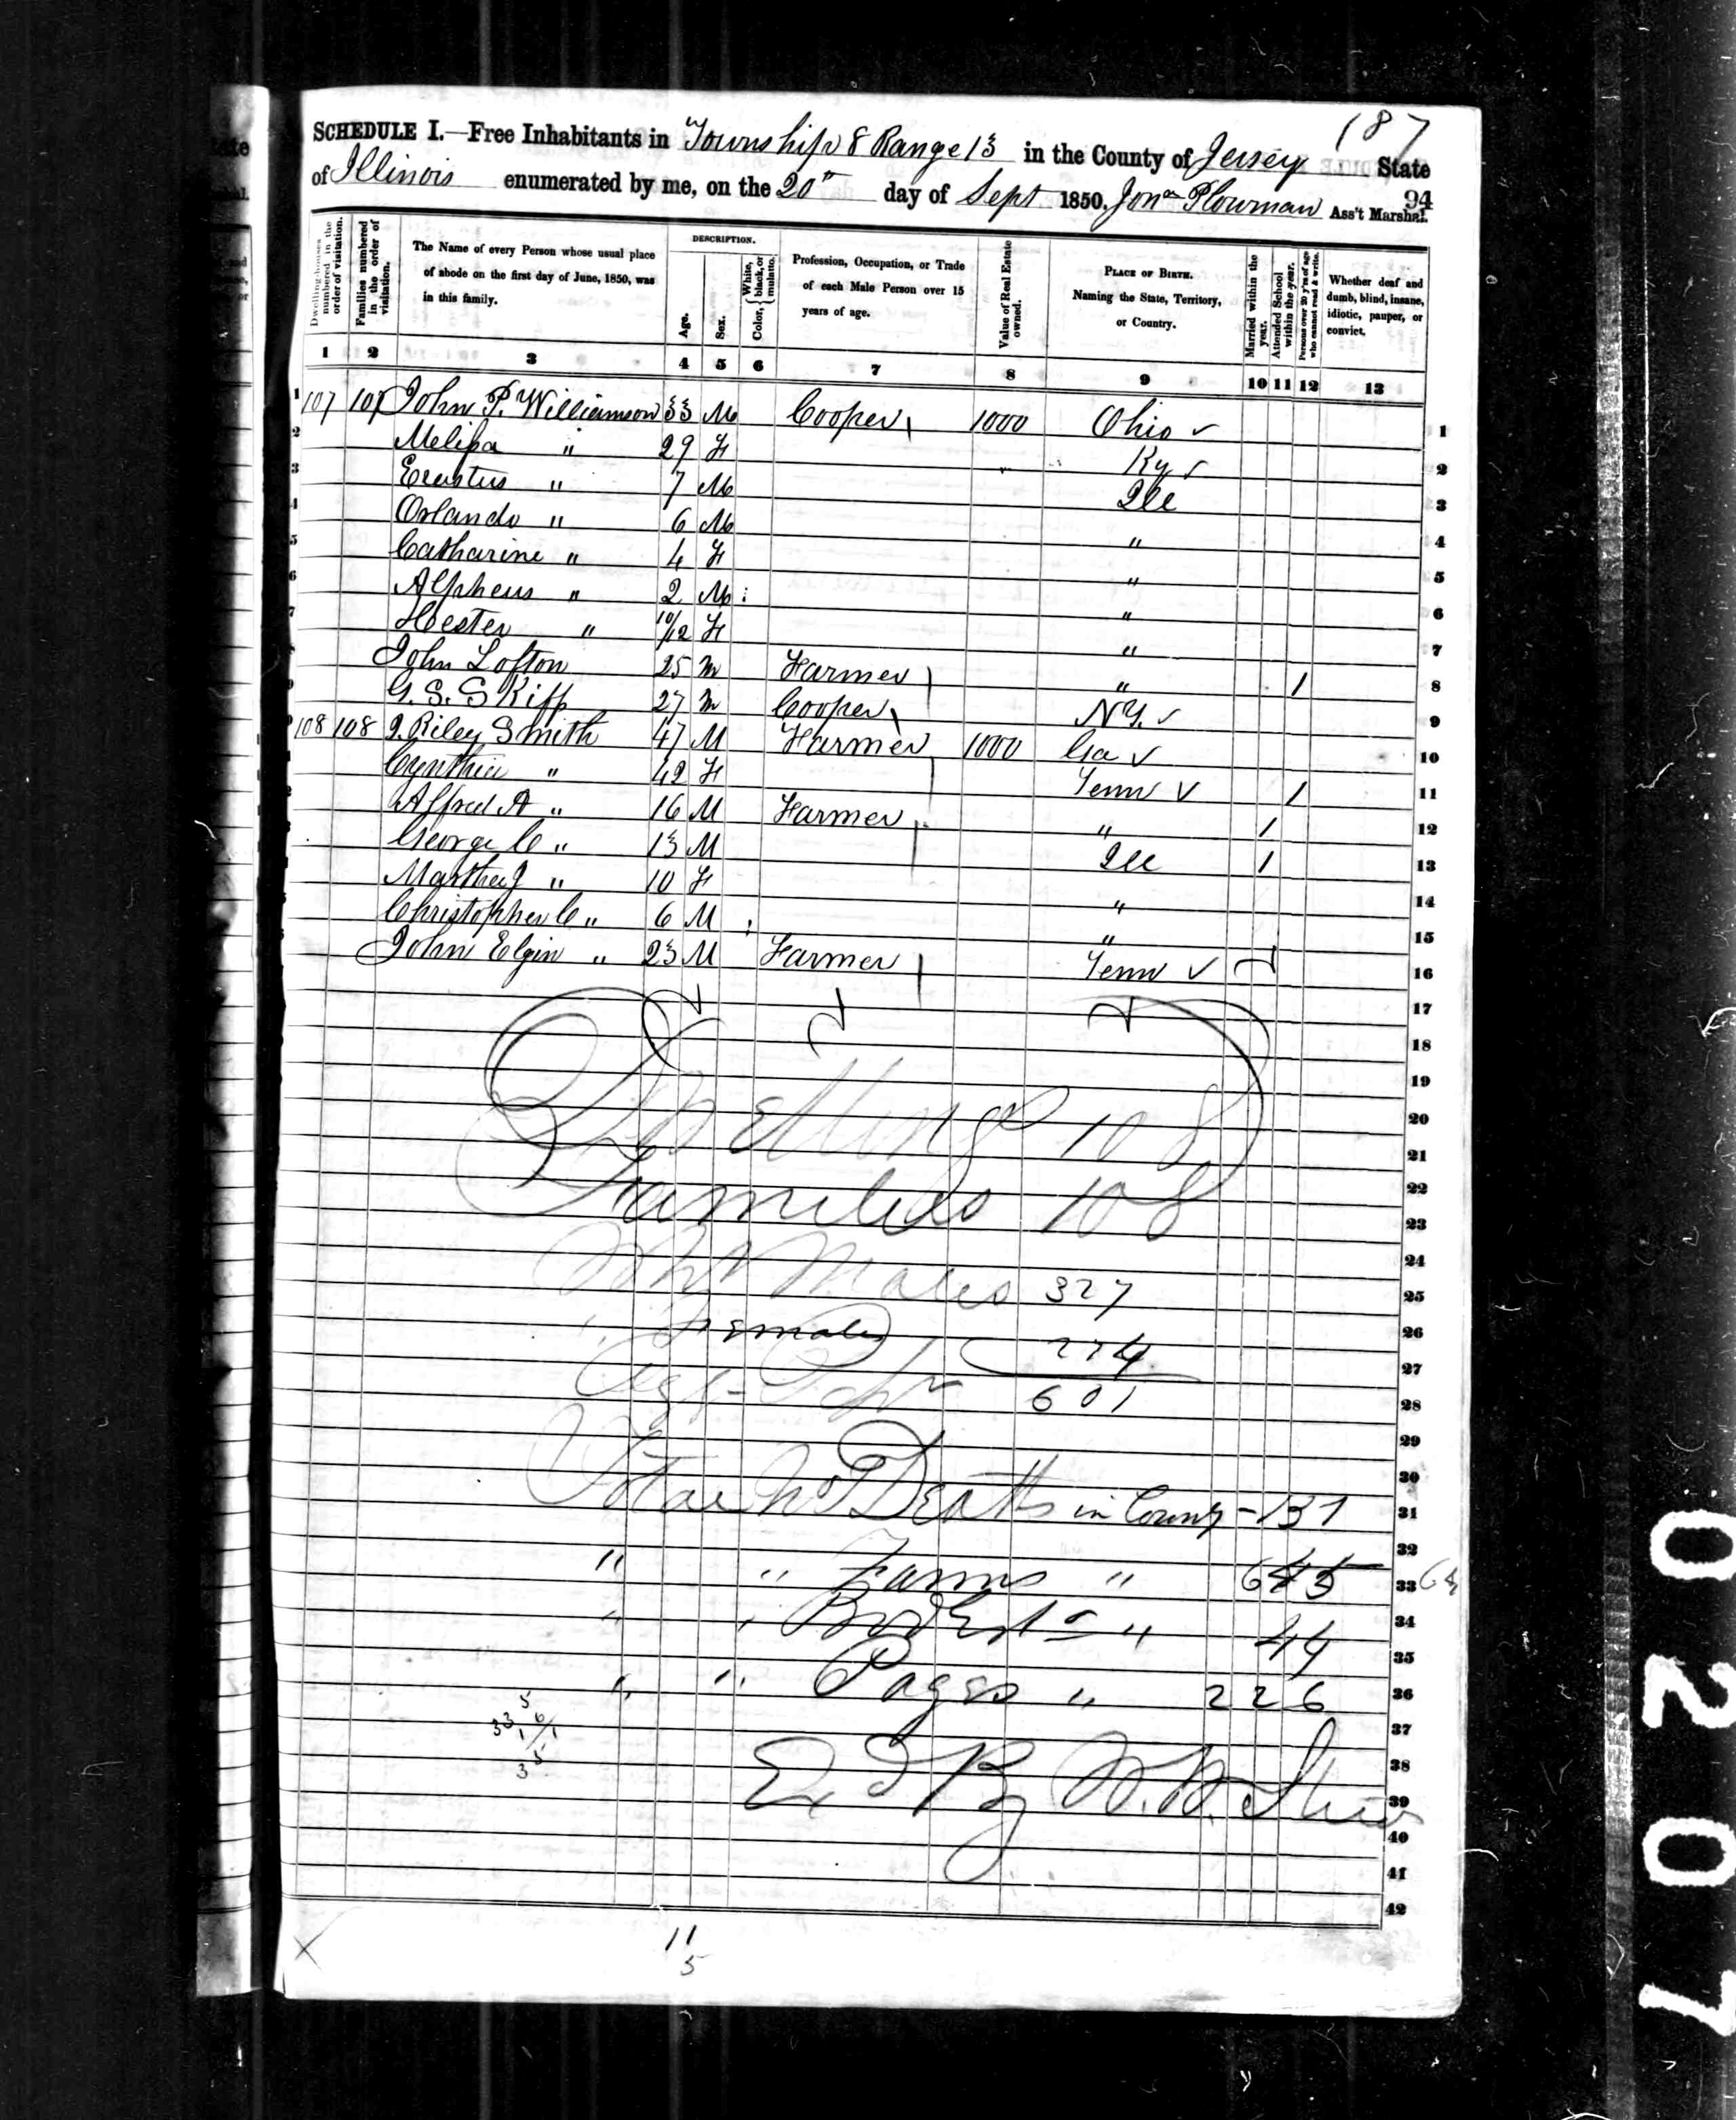 187
SCHEDULE I.—Free Inhabitants in Township 8 Range 13 in the County of Jersey State
of Illinois enumerated by me, on the 20th day of Sept 1850. Jonan Plowman Ass't Marshal.
94
Dwelling-houses numbered in the order of visitation.
Families numbered in the order of visitation.
The Name of every Person whose usual place of abode on the first day of June, 1850, was in this family.
DESCRIPTION.
Age.
Sex.
Color, White, black, or mulatto.
Profession, Occupation, or Trade of each Male Person over 15 years of age.
Value of Real Estate owned.
PLACE OF BIRTH. Naming the State, Territory, or Country.
Married within the year.
Attended School within the year.
Persons over 20 y'rs of age who cannot read & write.
Whether deaf and dumb, blind, insane, idiotic, pauper, or convict.
1 2 3 4 5 6 7 8 9 10 11 12 13
1 107 107 John P. Williamson 33 M Cooper 1000 Ohio 1
2 Melissa " 29 F Ky 2
3 Erastus " 7 M Ill 3
4 Orlando " 6 M " 4
5 Catharine " 4 F " 5
6 Alpheus " 2 M " 6
7 Hester " 10/12 F " 7
John Lofton 25 m Farmer " 1 8
9 G. S. Skiff 27 m Cooper N.Y. 9
108 108 J. Riley Smith 47 M Farmer 1000 Ga 10
Cynthia " 42 F Tenn 1 11
Alfred A " 16 M Farmer " 1 12
George C " 13 M Ill 1 13
Martha J " 10 F " 14
Christopher C " 6 M " 15
John Elgin " 23 M Farmer Tenn 16
17
18
19
20
Dwellings 108
21
22
Families 108
23
24
Wht Males 327
25
26
" Females 274
27
28
Agg. Popn 601
29
30
31
Total No Deaths in County - 131
32
" " Farms " 645
33
34
" " " 44
35
" " Pages " 226
36
37
38
39
40
41
42
11
5
0207